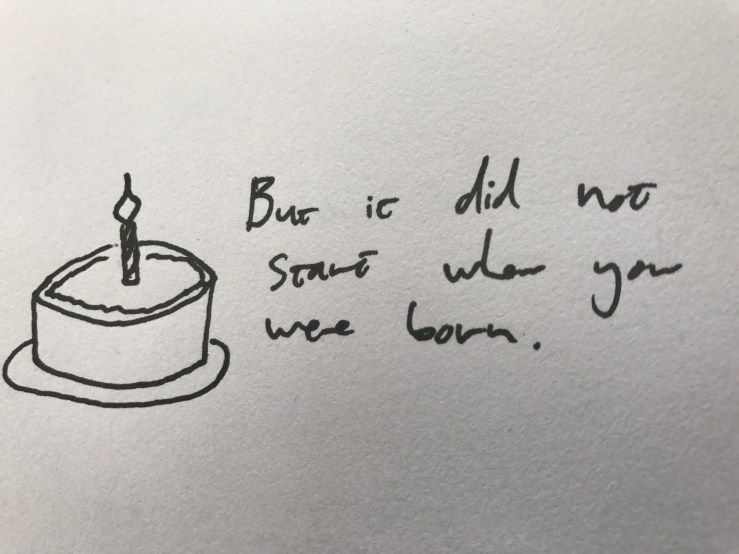 But it did not
start when you
were born.